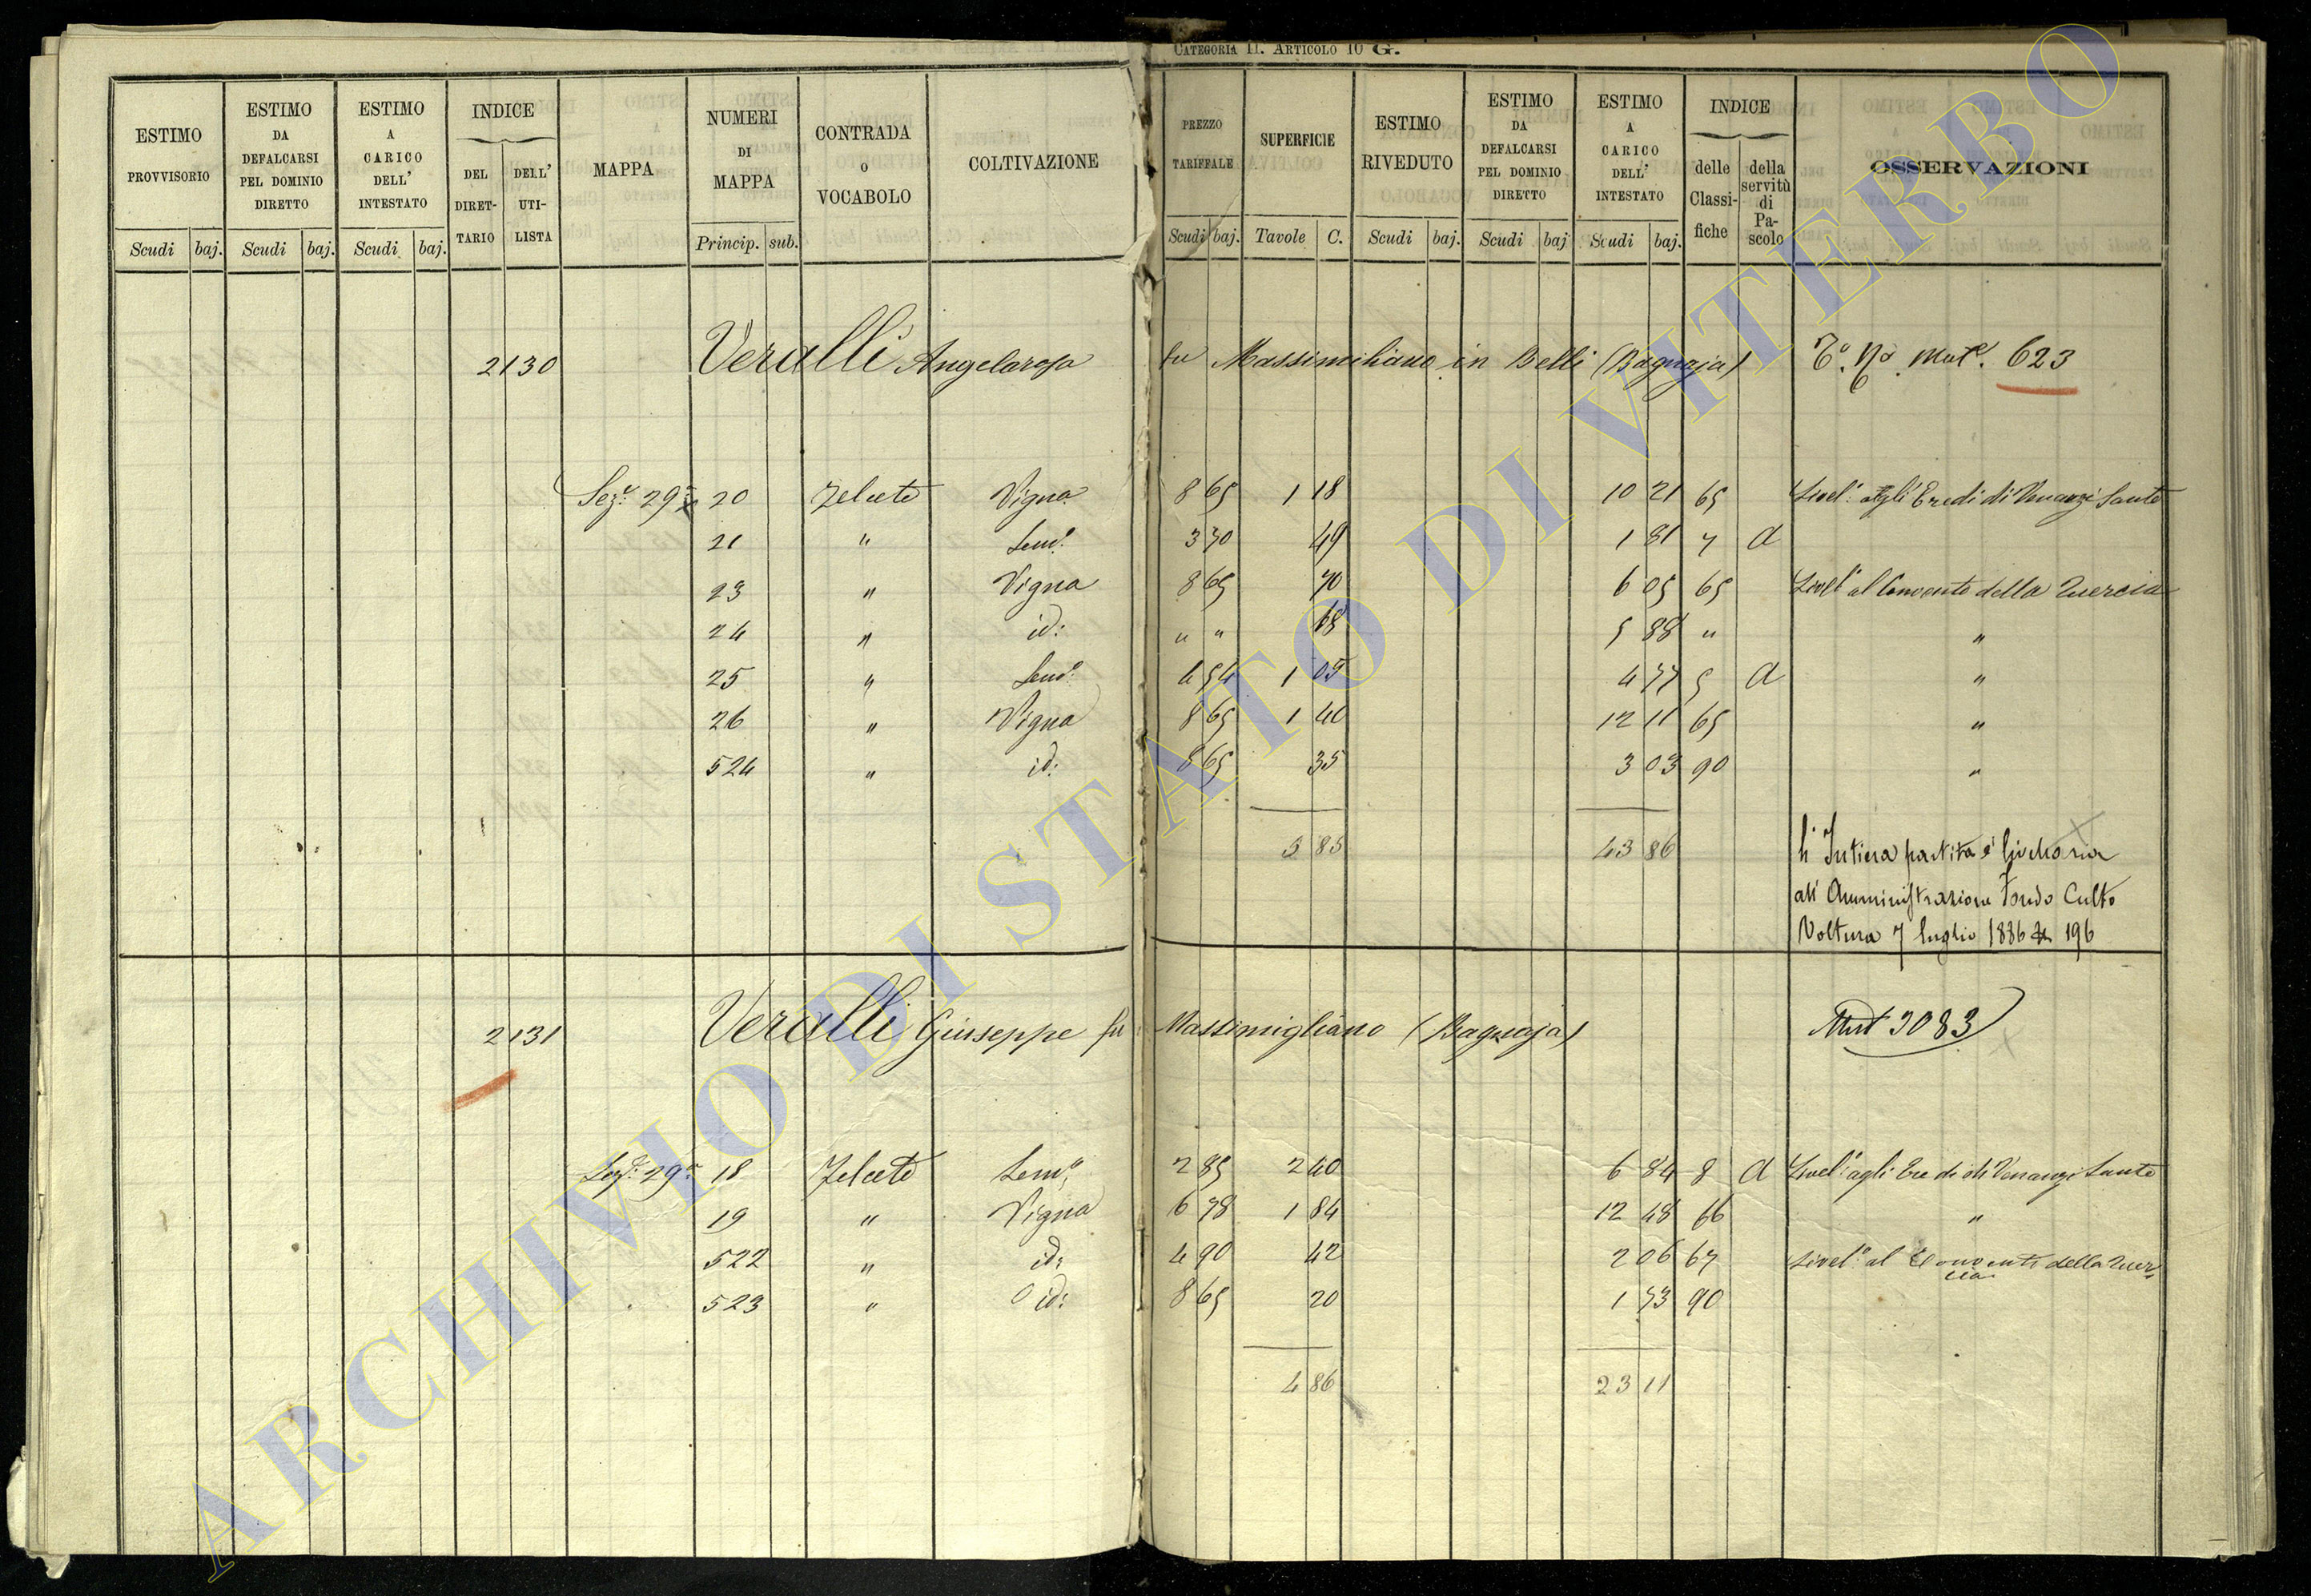 CATEGORIA II. ARTICOLO 10 G.
ESTIMO PROVVISORIO Scudi baj.
ESTIMO DA DEFALCARSI PEL DOMINIO DIRETTO Scudi baj.
ESTIMO A CARICO DELL' INTESTATO Scudi baj.
INDICE DEL DIRET-TARIO DELL' UTI-LISTA
MAPPA
NUMERI DI MAPPA Princip. sub.
CONTRADA O VOCABOLO
COLTIVAZIONE
PREZZO TARIFFALE Scudi baj.
SUPERFICIE Tavole C.
ESTIMO RIVEDUTO Scudi baj.
ESTIMO DA DEFALCARSI PEL DOMINIO DIRETTO Scudi baj
ESTIMO A CARICO DELL' INTESTATO Scudi baj.
INDICE delle Classi-fiche della servitù di Pa-scolo
OSSERVAZIONI
2130 Veralli Angelarosa fu Massimiliano in Belli (Bagnaja) 623
Sez.e 29a 20 Vigna 8 65 1 18 10 21 65 Livel.o agli Eredi di Venanzi Sante
21 " Sem.o 3 70 49 1 81 7 a
23 " Vigna 8 65 70 6 05 65 Livel.o al Convento della Quercia
24 " id: " " 68 5 88 " "
25 " Sem.o 4 54 1 05 4 77 5 a "
26 " Vigna 8 65 1 40 12 11 65 "
524 " id: 8 65 35 3 03 90 "
5 85 43 86
L'Intiera partita è livellaria
all'Amministrazione Fondo Culto
Voltura 7 luglio 1886 N 196
2131 Veralli Giuseppe fu Massimigliano (Bagnaja) Mut 3083
Sez.e 29a 18 Sem.o 2 85 2 40 6 84 8 a Livel.o agli Eredi di Venanzi Sante
19 " Vigna 6 78 1 84 12 48 66 "
522 " id: 4 90 42 2 06 67 Livel.o al Convento della Quer
cia
523 " id: 8 65 20 1 73 90
4 86 23 11
ARCHIVIO DI STATO DI VITERBO